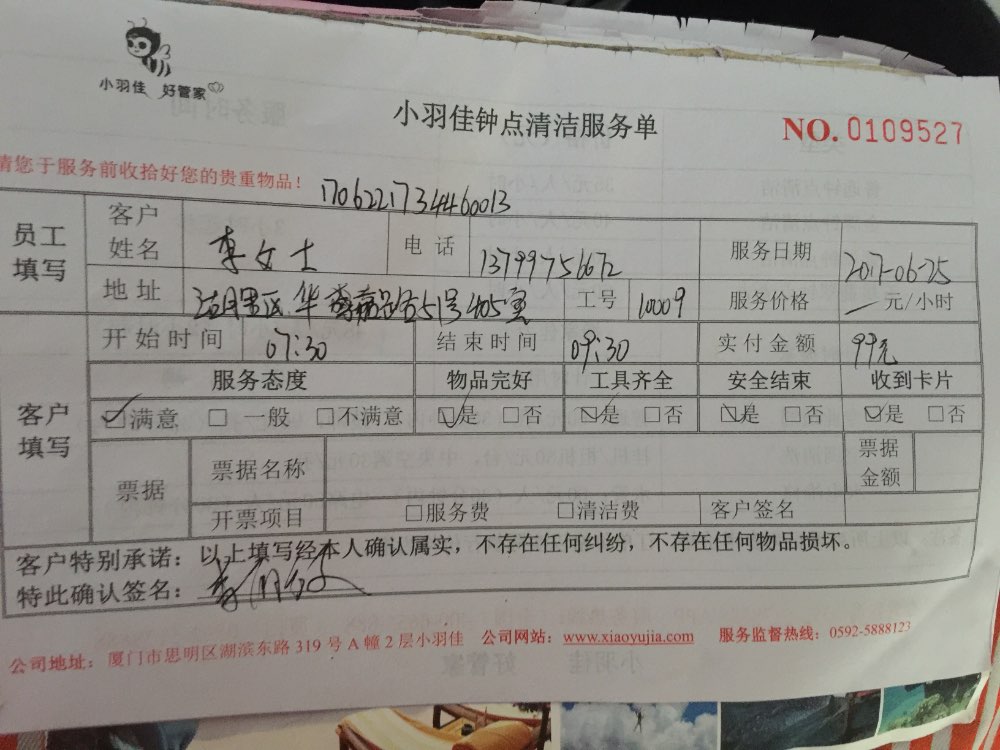 小羽佳 好管家
小羽佳钟点清洁服务单
NO. 0109527
请您于服务前收拾好您的贵重物品!
1706221734460013
员工填写 客户姓名 李女士 电话 13799756672 服务日期 2017-06-25
地址 湖里区华 51号405室 工号 10009 服务价格 一 元/小时
客户填写 开始时间 07:30 结束时间 09:30 实付金额 99元
服务态度 物品完好 工具齐全 安全结束 收到卡片
☑满意 □一般 □不满意 ☑是 □否 ☑是 □否 ☑是 □否 ☑是 □否
票据 票据名称 票据金额
开票项目 □服务费 □清洁费 客户签名
客户特别承诺:以上填写经本人确认属实,不存在任何纠纷,不存在任何物品损坏。
特此确认签名:李
公司地址:厦门市思明区湖滨东路 319 号 A 幢 2 层小羽佳 公司网站:www.xiaoyujia.com 服务监督热线:0592-5888123